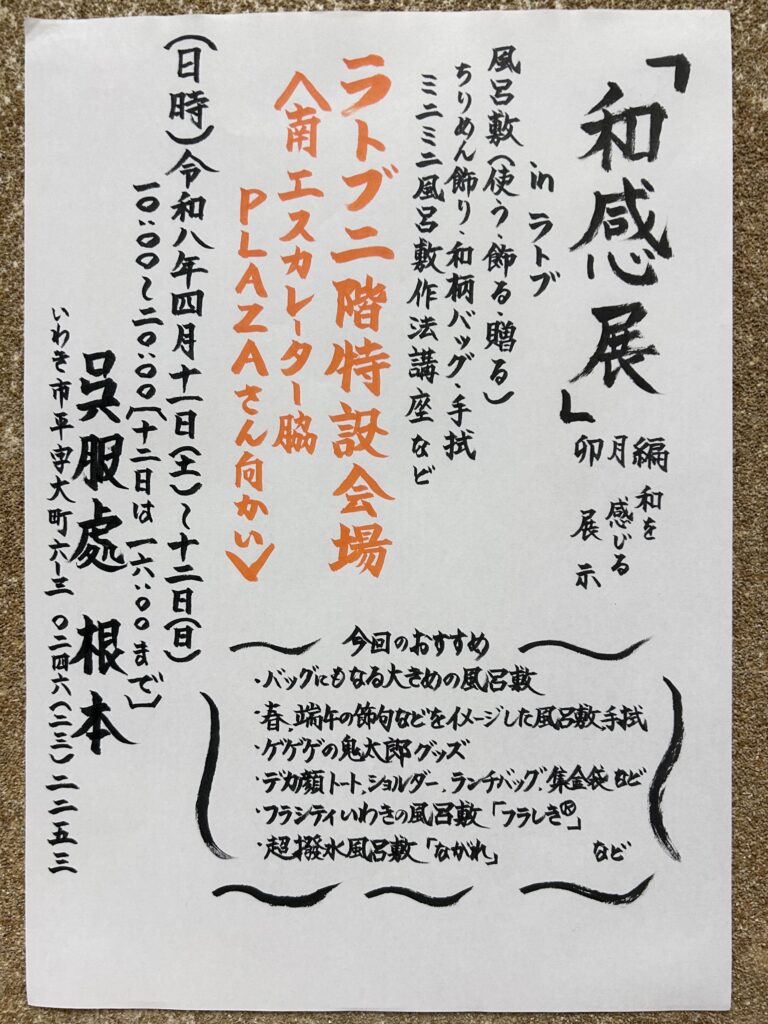 「和感展」
卯月編
和を
感じる
展示
in ラトブ
風呂敷(使う・飾る・贈る)
ちりめん飾り・和柄バッグ・手拭
ミニミニ風呂敷作法講座など
ラトブ二階特設会場
〈南エスカレーター脇
PLAZAさん向かい〉
(日時)令和八年四月十一日(土)〜十二日(日)
一〇:〇〇〜二〇:〇〇〔十二日は一六:〇〇まで〕
呉服處 根本
いわき市平字大町六-三 〇二四六(二三)二二五三
今回のおすすめ
・バッグにもなる大きめの風呂敷
・春、端午の節句などをイメージした風呂敷手拭
・ゲゲゲの鬼太郎グッズ
・デカ顔トート、ショルダー、ランチバッグ、集金袋など
・フラシティいわきの風呂敷「フラしき®」
・超撥水風呂敷「ながれ」 など